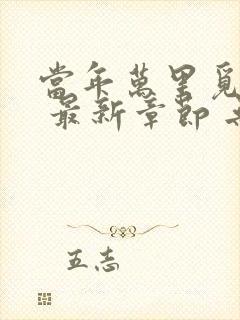 當年萬里覓
最新章節
五志